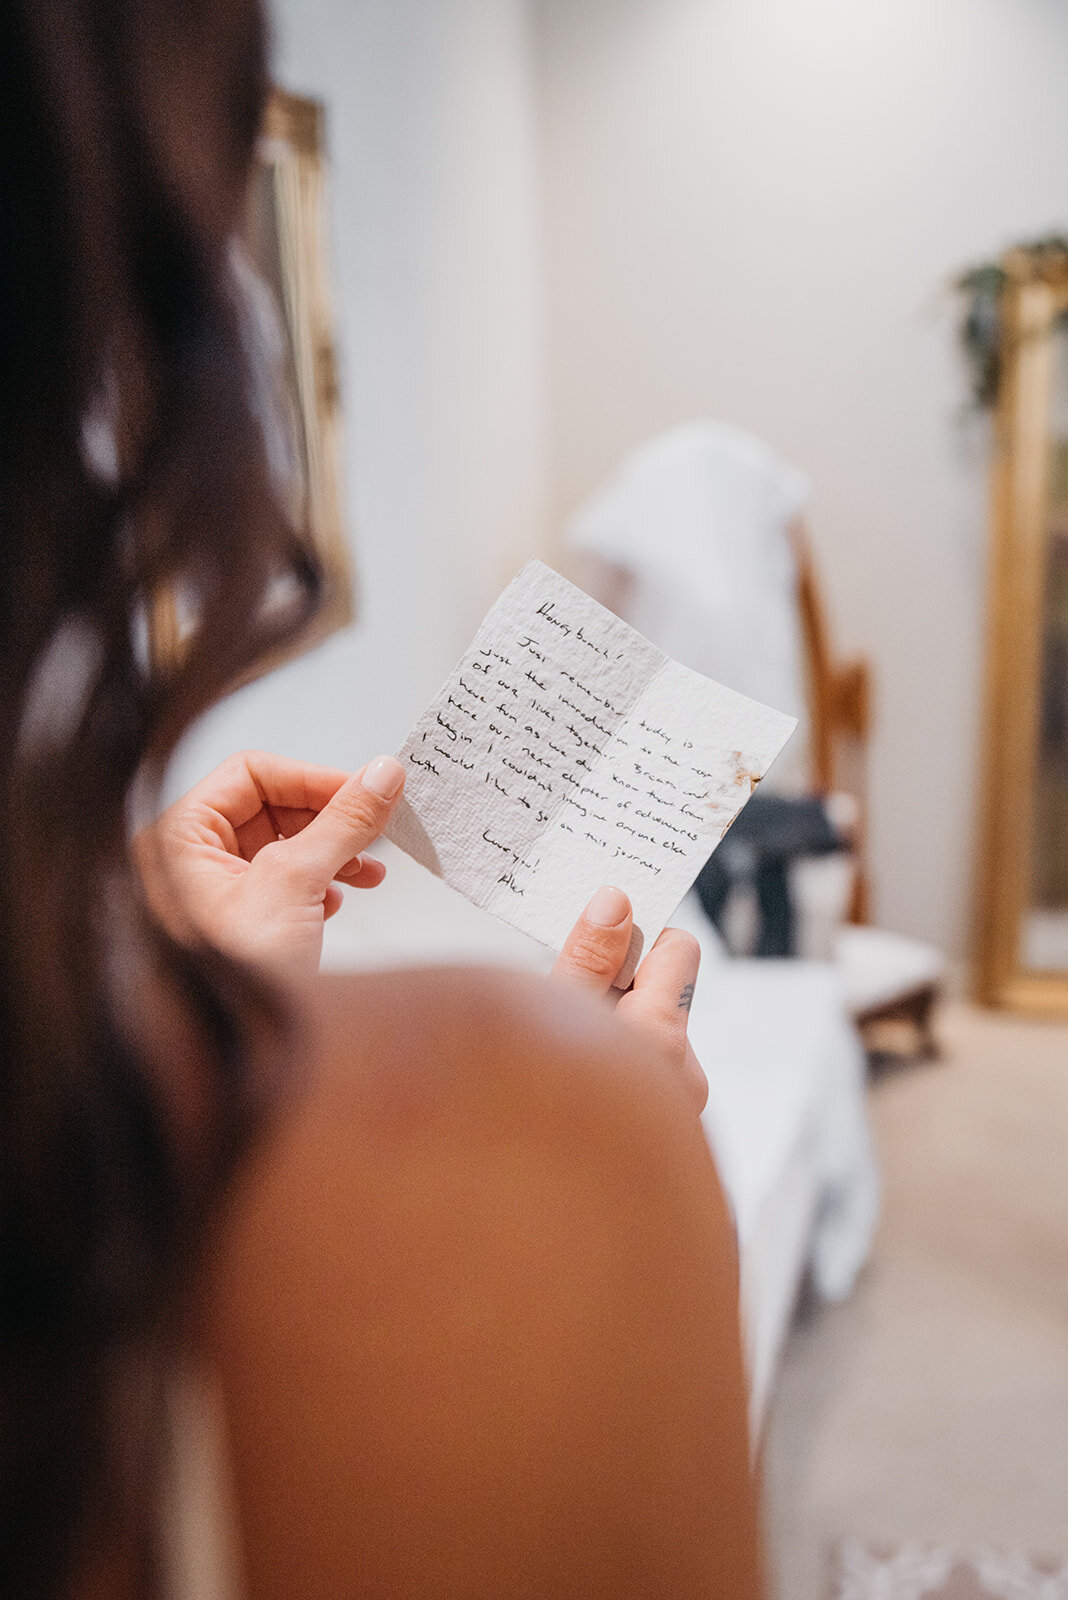 Honeybunch!
Just remember, today is
just the introduction to the rest
of our lives together. Breath and
have fun as we do know that from
here our next chapter of adventures
begin. I couldn't imagine anyone else
I would like to go on this journey
with
Love you!
Alex